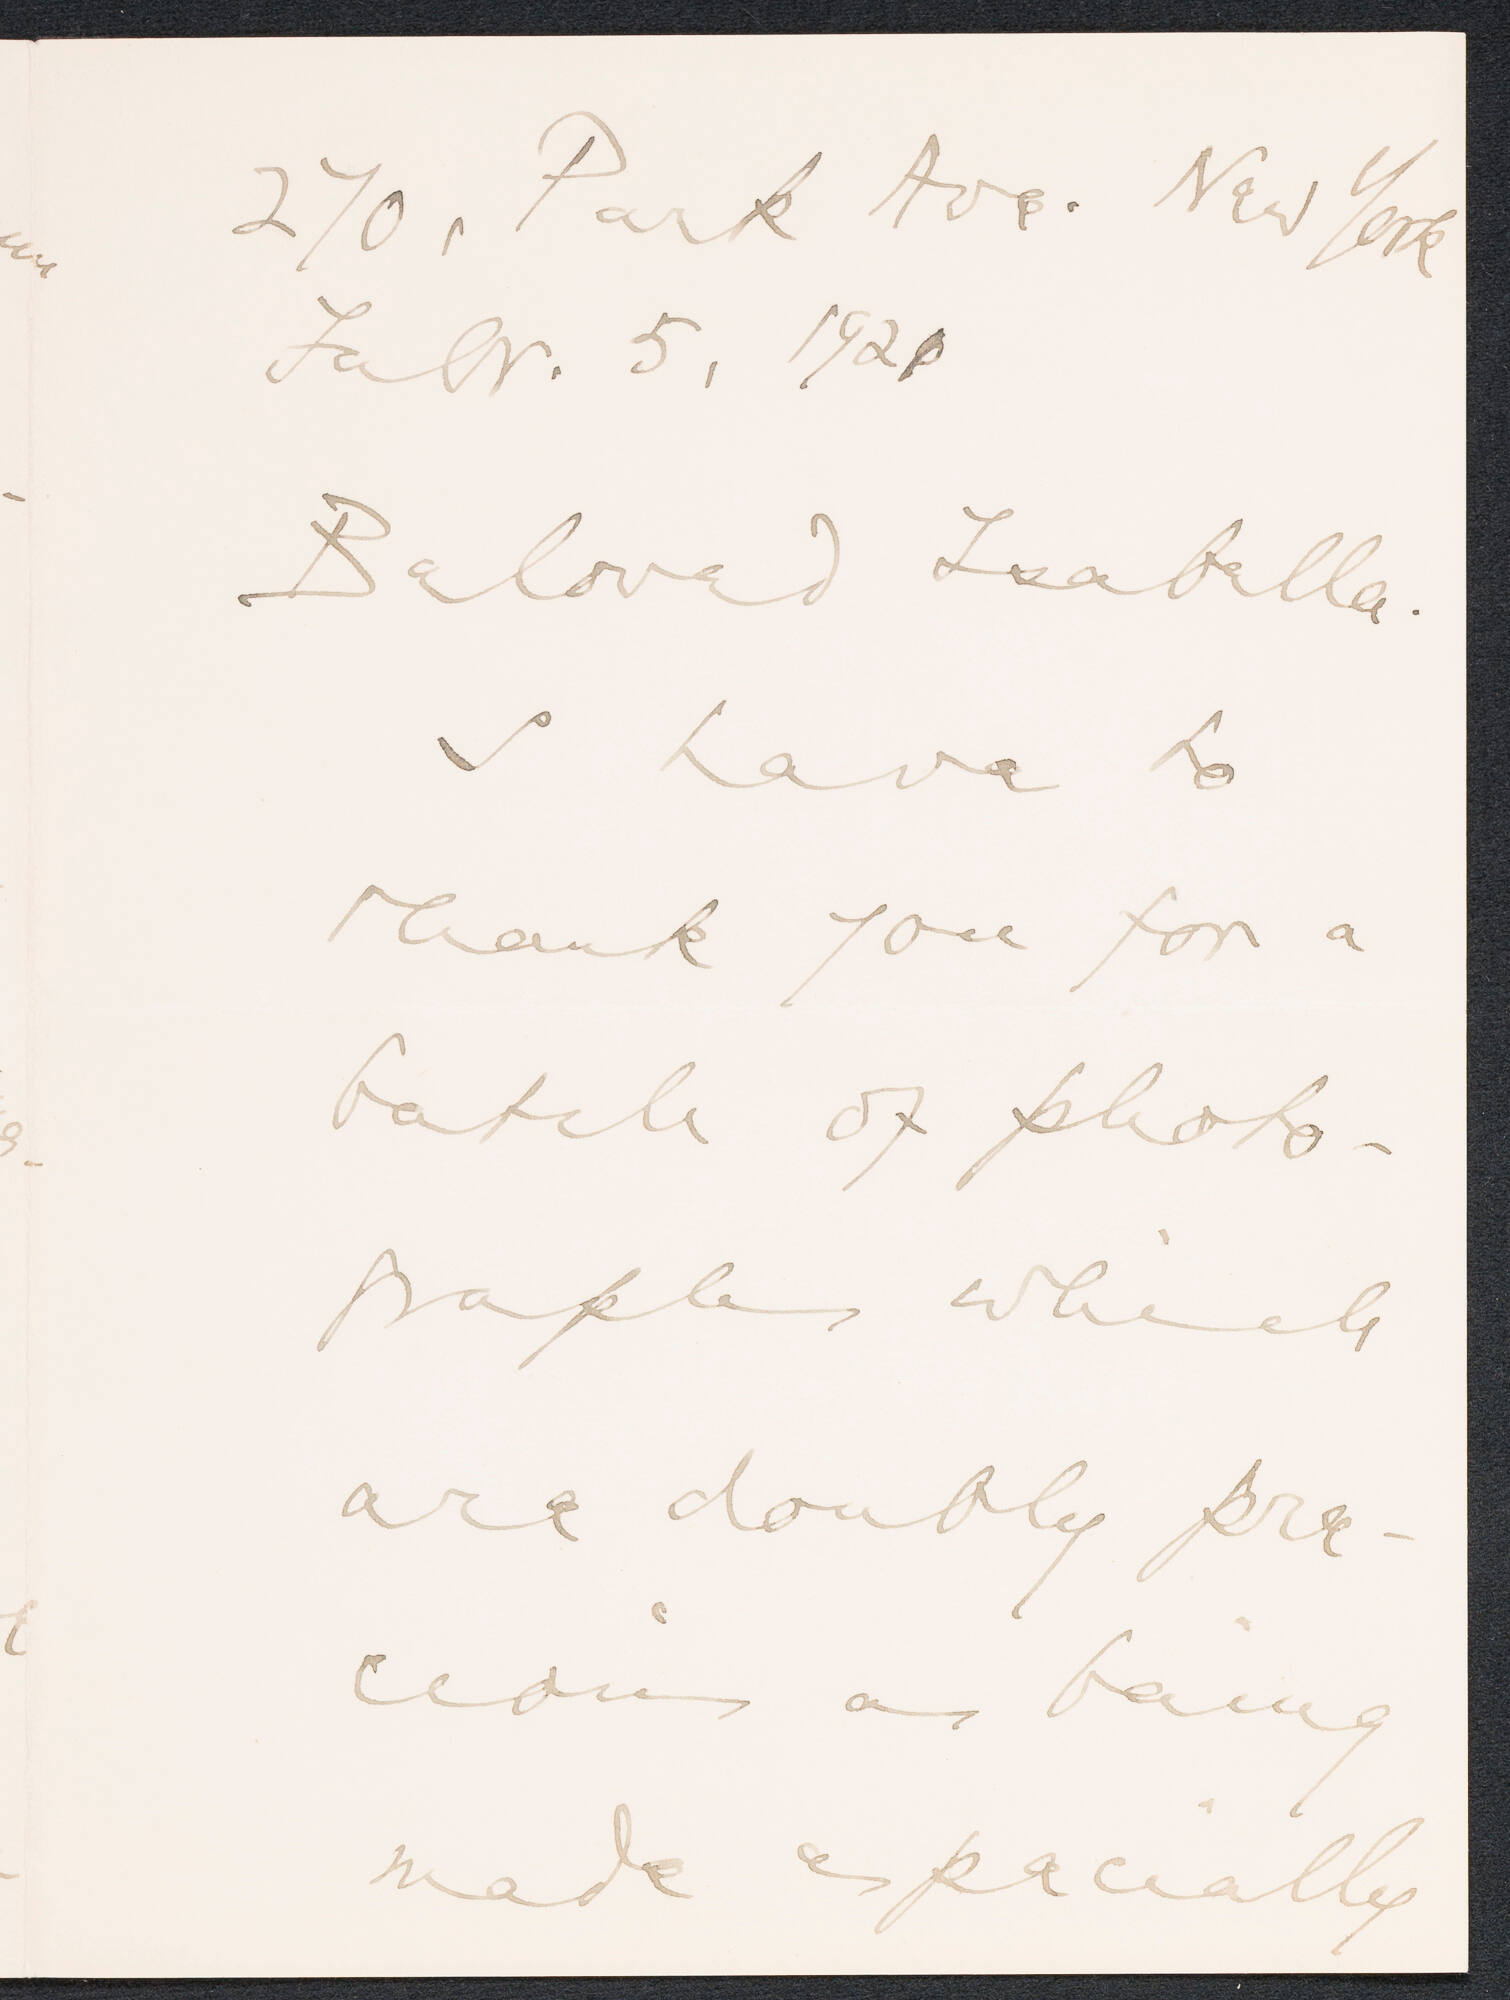 270, Park Ave. New York
Febr. 5, 1921
Beloved Isabella.
I have to
thank you for a
batch of photo-
graphs which
are doubly pre-
cious as being
made especially